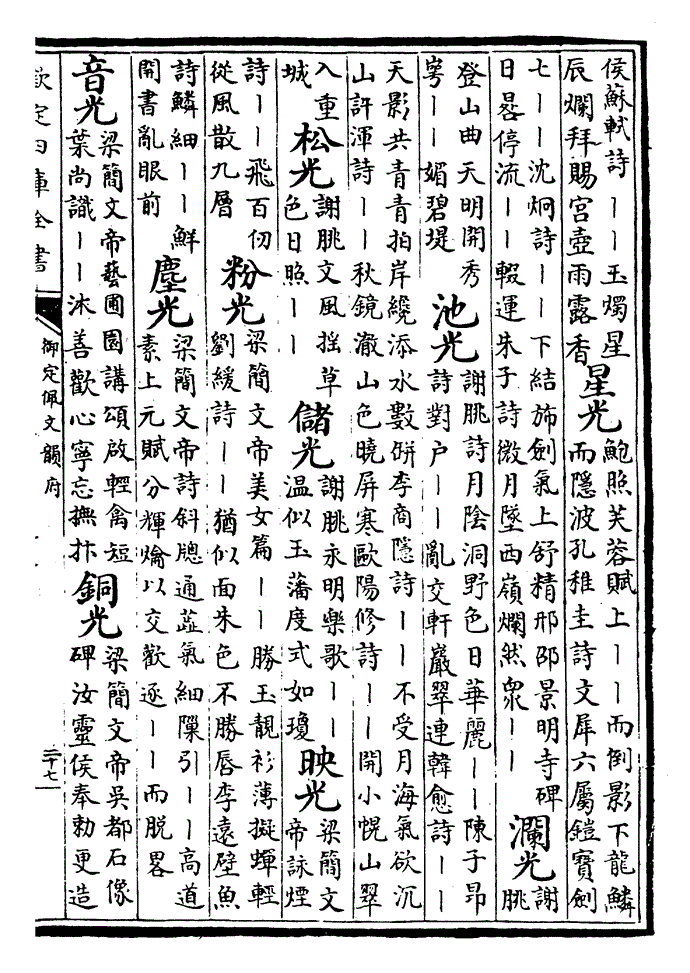 侯蘇軾詩——玉燭星
辰爛拜賜宮壺雨露香
星光
鮑照芙蓉賦上——而倒影下龍鱗
而隱波孔稚圭詩文犀六屬鎧寶劍
七——沈炯詩——下結斾劍氣上舒精邢卲景明寺碑
日晷停流——輟運朱子詩微月墜西嶺爛然衆——
瀾光
謝
朓
登山曲天明開秀
崿——媚碧堤
池光
謝朓詩月陰洞野色日華麗——陳子昂
詩對户——亂交軒巖翠連韓愈詩——
天影共青青拍岸纔添水數缾李商隱詩——不受月海氣欲沉
山許渾詩——秋鏡澈山色曉屏寒歐陽修詩——開小幌山翠
入重
城
松光
謝朓文風揺草
色日照——
儲光
謝朓永明樂歌——
温似玉藩度式如瓊
映光
梁簡文
帝詠煙
詩——飛百仞
從風散九層
粉光
梁簡文帝美女篇——勝玉靚衫薄擬蟬輕
劉緩詩——猶似面朱色不勝唇李遠壁魚
詩鱗細——鮮
開書亂眼前
塵光
梁簡文帝詩斜牕通蘂氣細隟引——高道
素上元賦分輝爚以交歡逐——而脱畧
音光
梁簡文帝藝圃園講頌啟輕禽短
葉尚識——沐善歡心寧忘撫抃
銅光
梁簡文帝吳都石像
碑汝靈侯奉勅更造
欽定四庫全書
御定佩文韻府
三十七